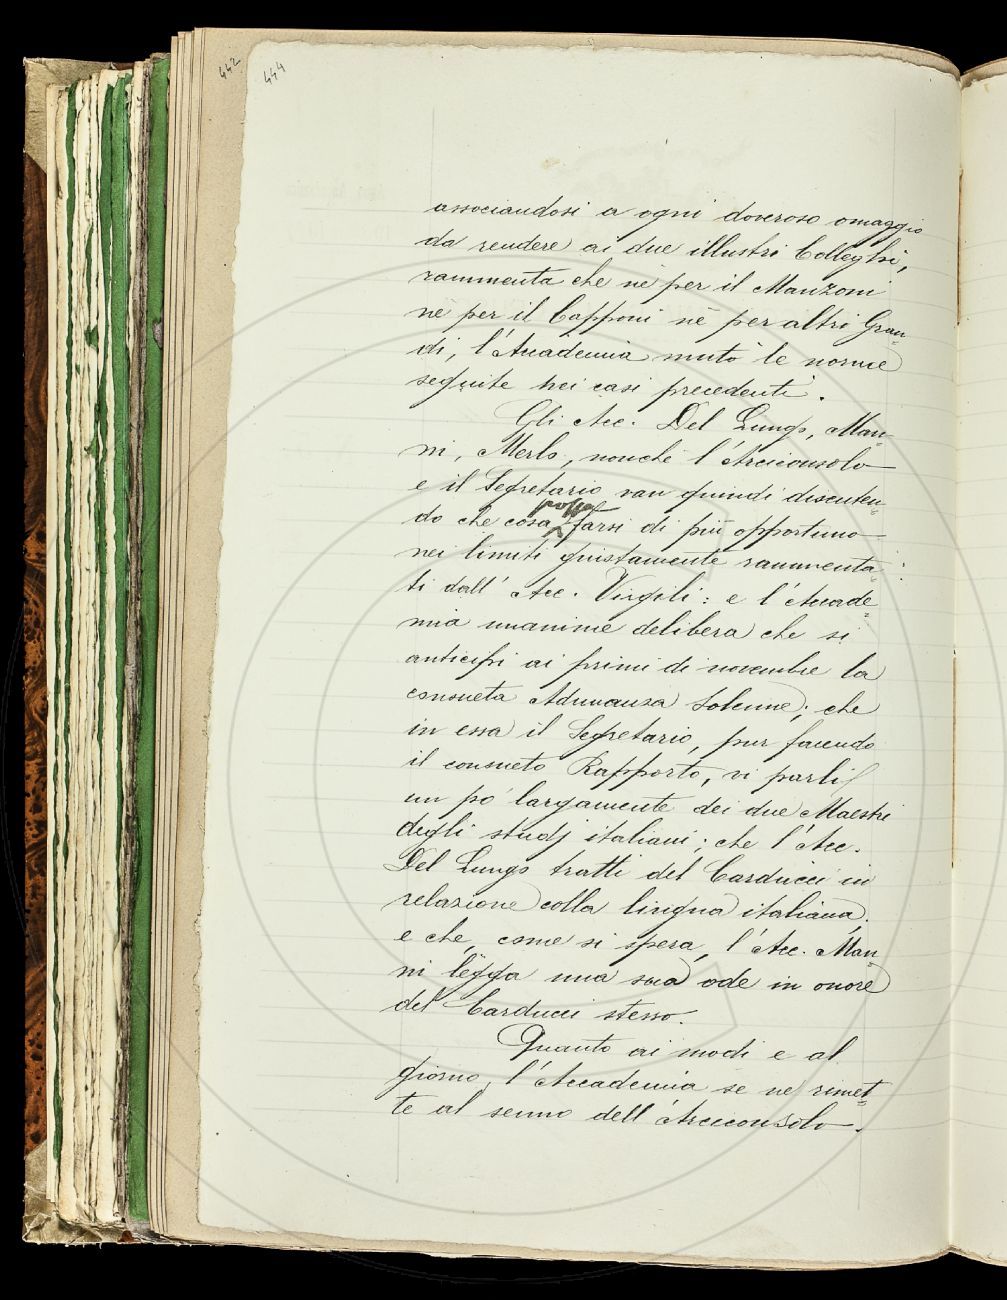 442
444
associandosi a ogni doveroso omaggio
da rendere ai due illustri Colleghi,
rammenta che nè per il Manzoni
nè per il Capponi nè per altri Gran=
di, l'Accademia mutò le norme
seguite nei casi precedenti.
Gli Acc. Del Lungo, Man=
ni, Merlo, nonchè l'Arciconsolo
e il Segretario van quindi discuten=
possa
do che cosa farsi di più opportuno
nei limiti giustamente rammenta=
ti dall'Acc. Virgili: e l'Accade=
mia unanime delibera che si
anticipi ai primi di novembre la
consueta Adunanza Solenne; che
in essa il Segretario, pur facendo
il consueto Rapporto, vi parli
un po' largamente dei due Maestri
degli studj italiani; che l'Acc.
Del Lungo tratti del Carducci in
relazione colla lingua italiana;
e che, come si spera, l'Acc. Man=
ni legga una sua ode in onore
del Carducci stesso.
Quanto ai modi e al
giorno, l'Accademia se ne rimet=
te al senno dell'Arciconsolo.